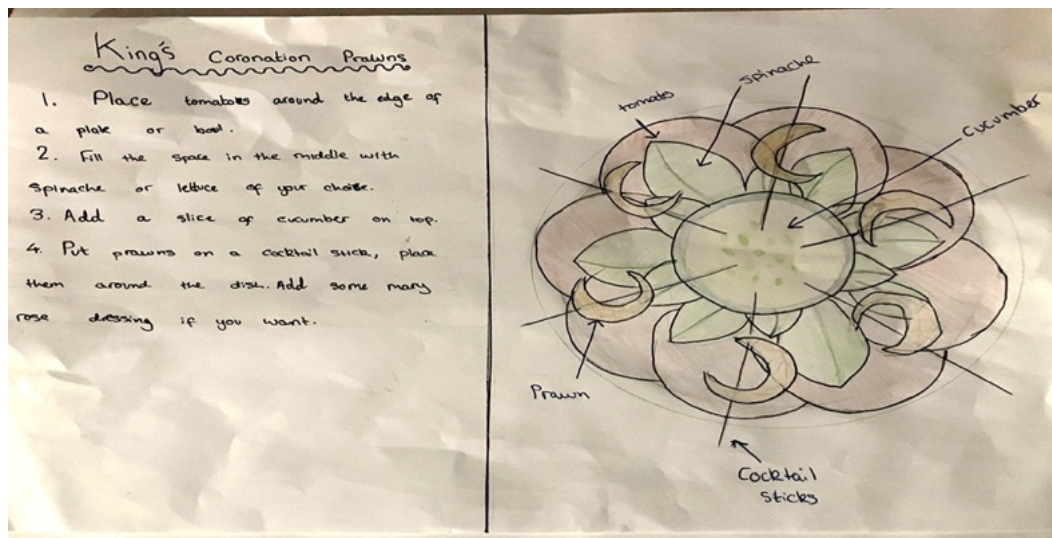 King's Coronation Prawns
1. Place tomatoes around the edge of
a plate or bowl.
2. Fill the space in the middle with
spinache or lettuce of your choise.
3. Add a slice of cucumber on top.
4. Put prawns on a cocktail stick, place
them around the dish. Add some mary
rose dressing if you want.
spinache
tomato
cucumber
Prawn
Cocktail
Sticks